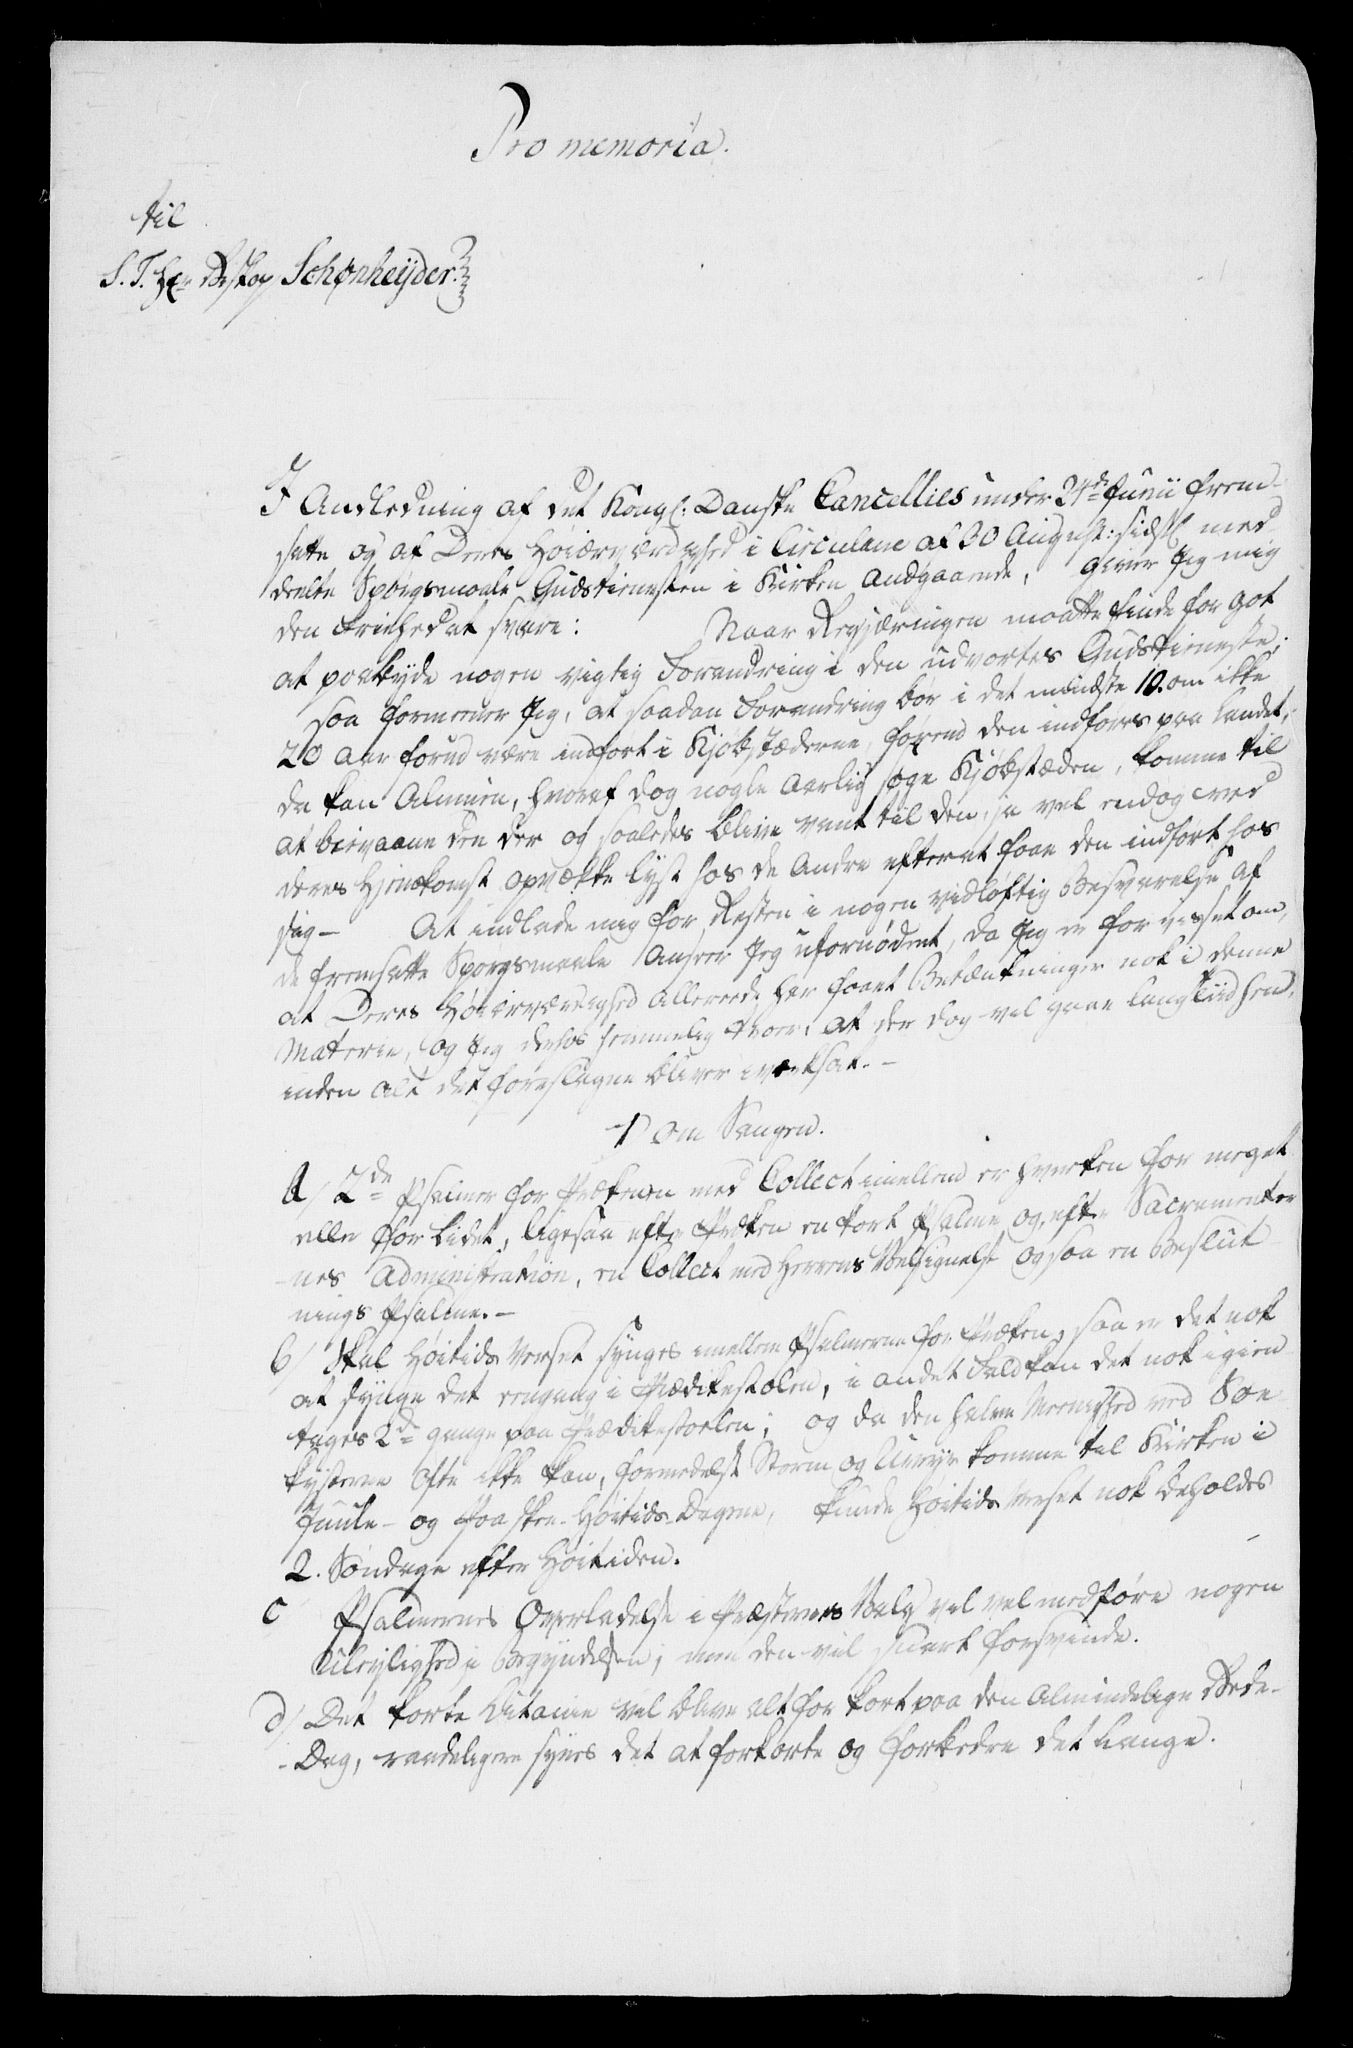 Pro memoria.
til
S. T. Hr. Biskop Schønheyder.
I Andledning af det Kongl: Danske Cancellies under 24de Junii frem-
satte og af Deres Høiærværdighed i Circulaire af 30 August: sidstl med
deelte Spørgsmaale Gudstienesten i Kirken Andgaaende, giver Jeg mig
den Friehed at svare: Naar Regjæringen maatte finde for got
at paabyde nogen vigtig Forandring i den udvortes Gudstieneste;
saa formeener Jeg, at saadan Forandring bør i det mindste 10. om ikke
20 Aar forud være indført i Kjøbstæderne, førend den indføres paa Landet;
da kan Almuen, hvoraf dog nogle Aarlig søge Kjøbstæden, komme til
at bievaane den der og saaledes blive vant til den, ja vel endog ved
deres Hjemkomst opvække lyst hos de Andre efter at faae den indført hos
sig – At indlade mig for Resten i nogen vidløftig Besvarelse af
de fremsatte Spørgsmaale Anseer Jeg ufornødent, da Jeg er forvisset om,
at Deres Høiærværdighed allereede har faaet Betænkninger nok i denne
Materie, og Jeg derhos hemmelig troer: at der dog vil gaae lang Tiid hen,
inden alt det foreslagne bliver iværksat. –
1) Om Sangen.
a/ 2de Psalmer for Præken med Collect imellem er hverken for meget
eller for lidet, ligesaa efter Præken en kort Psalme og efter Sacramenter
nes Administration, en Collect med Herrens Velsignelse og saa en Beslut
nings Psalme. –
b/ Skal Høitids Verset synges imellem Psalmerne for Præken, saa er det nok
at synge det eengang i Prædikestolen, i andet Fald kan det nok igien-
tages 2de gange paa Prædikestoelen; og da den halve Meenighed ved Søe-
kysterne ofte ikke kan, formedelst Storm og Uveyr komme til Kirken i
Juule- og Paaske-Høitids-Dagene, kunde Høitids Verset nok beholdes
2. Søndage efter Høitiden.
c Psalmernes Overladelse i Præsternes Valg vil vel medføre nogen
Uleylighed i Begyndelsen; men den vil snart forsvinde.
d/ Det korte Litanie vil blive alt for kort paa den Almindelige Bede-
-Dag, raadeligere synes det at forkorte og forbedre det Lange.